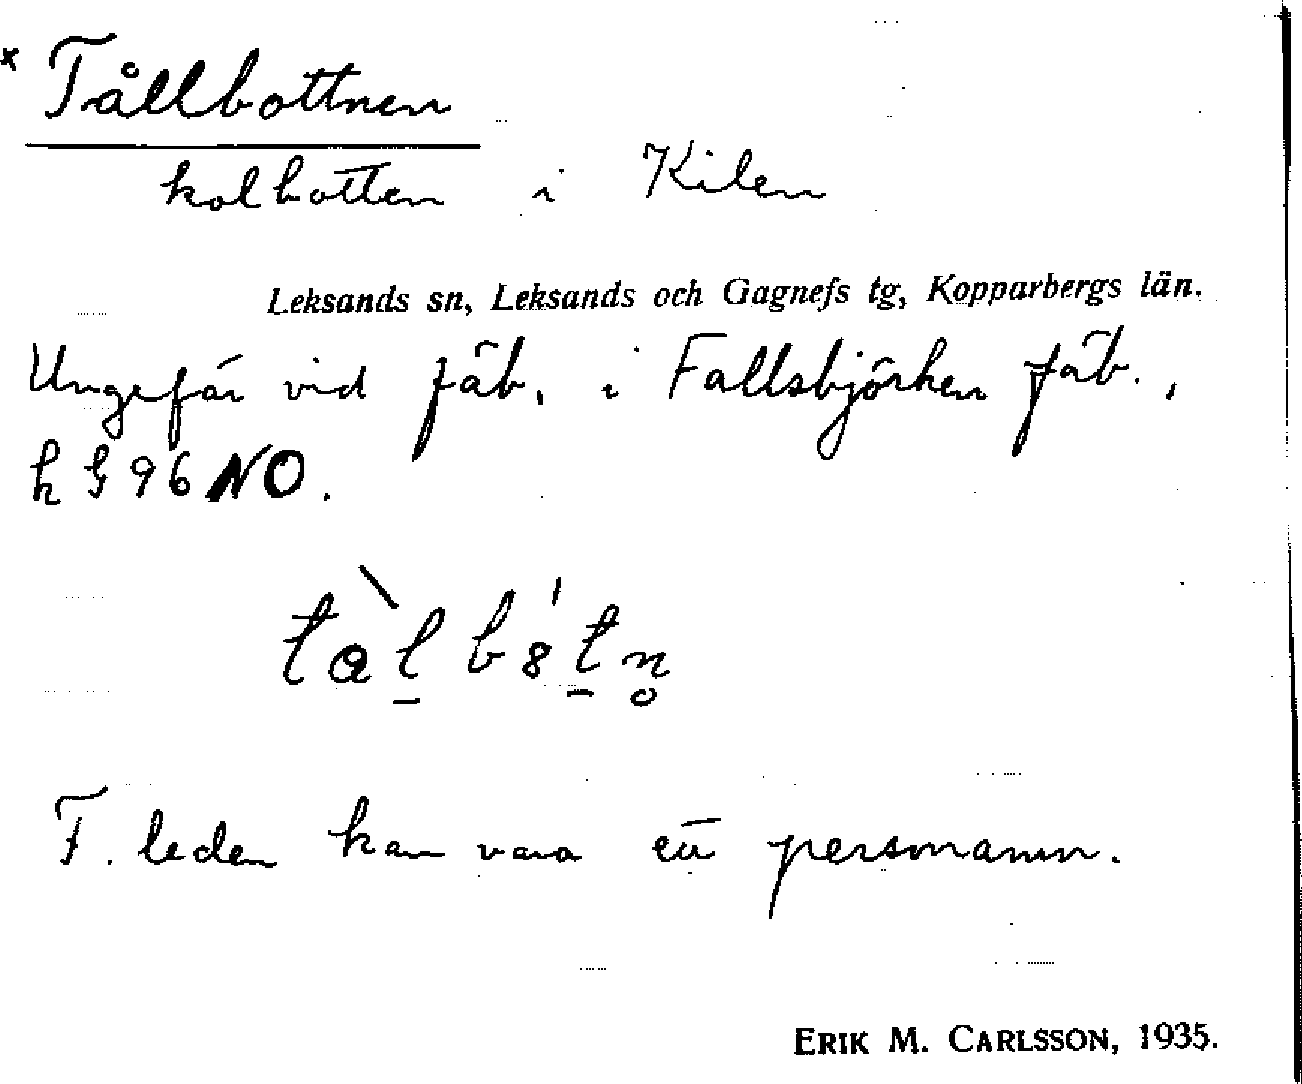 x Tållbottnen
kolbotten i Kilen
Leksands sn, Leksands och Gagnefs tg, Kopparbergs län.
Ungefär vid fäb. i Fallsbjörken fäb.,
96 NO.
F. leden kan vara ett personnamn.
ERIK M. CARLSSON, 1935.